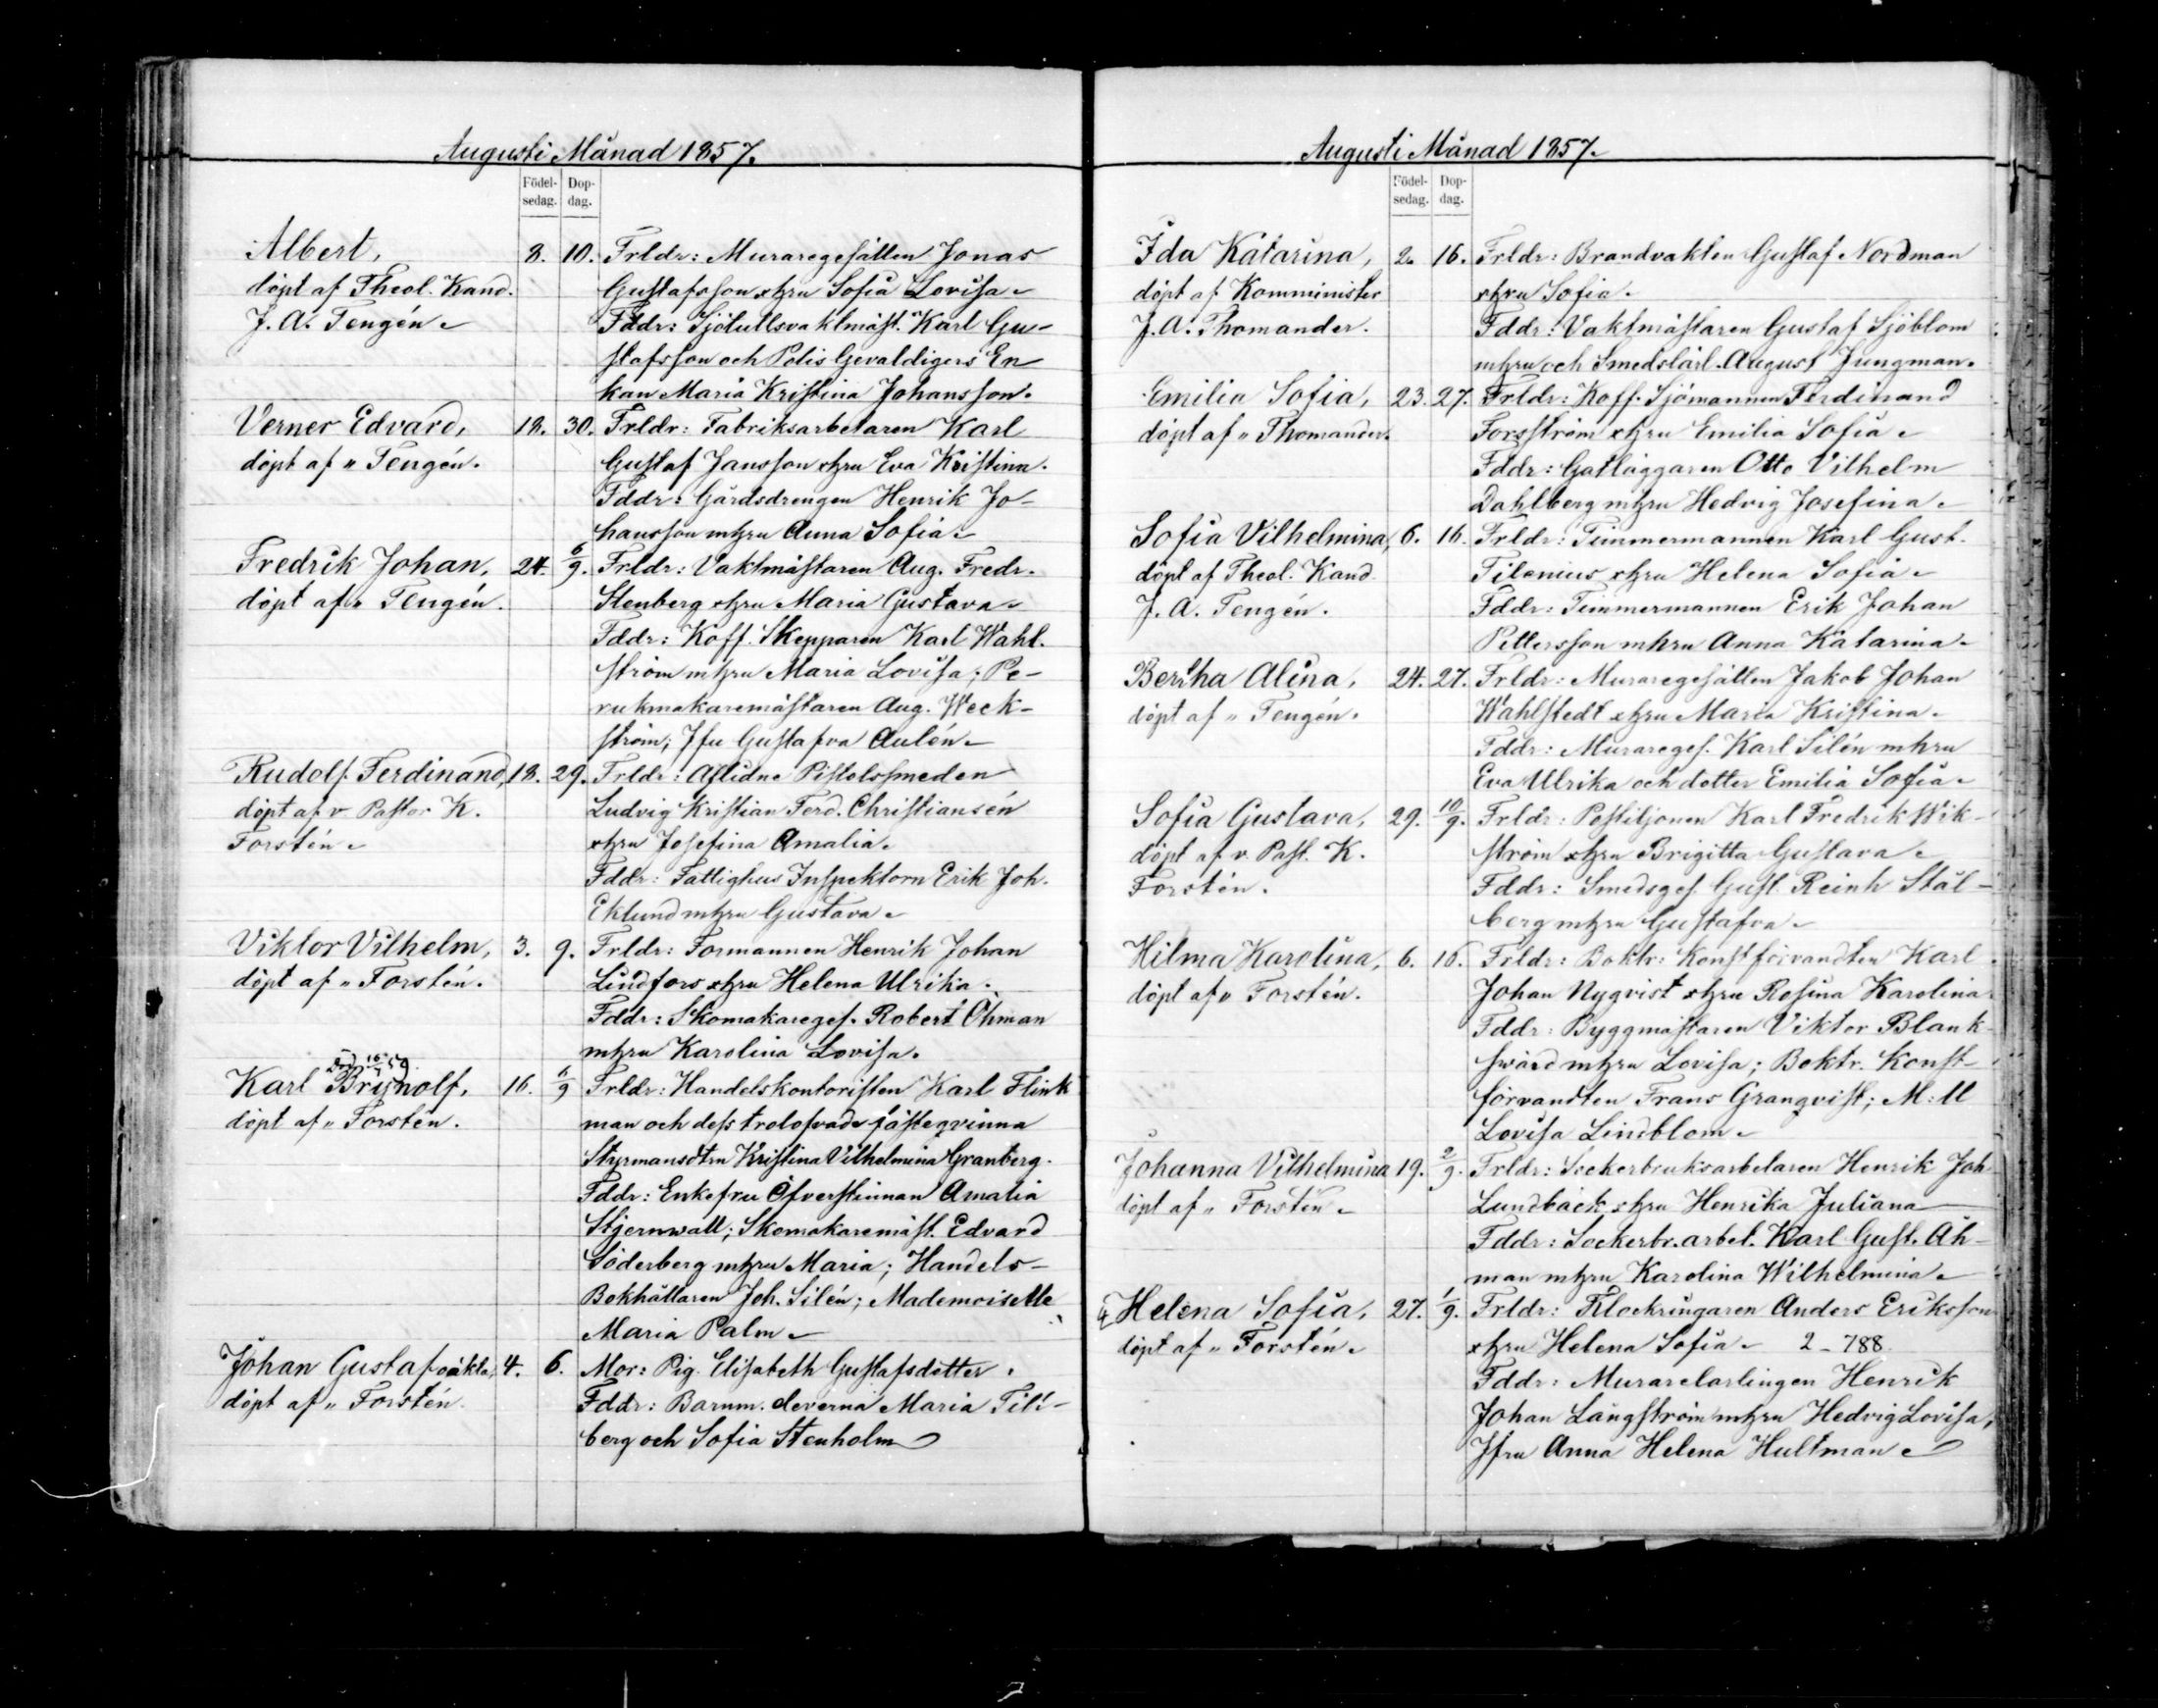 Augusti Månad 1857.
Födel-
sedag.
Dop-
dag.
Albert, 8. 10. Frldr: Muraregesällen Jonas
döpt af Theol. Kand. Gustafsson o. hzu Sofia Lovisa.
J. A. Tengén. Fddr: Sjötullsvaktmäst. Karl Gu-
stafsson och Polis Gevaldigers En
kan Maria Kristina Johansson.
Verner Edvard, 18. 30. Frldr: Fabriksarbetaren Karl
döpt af „ Tengén. Gustaf Jansson o. hzu Eva Kristina.
Fddr: Gårdsdrengen Henrik Jo-
hansson m hzu Anna Sofia.
Fredrik Johan, 24. 6/9. Frldr: Vaktmästaren Aug. Fredr.
döpt af „ Tengén. Stenberg o. hzu Maria Gustava.
Fddr: Koff. Skepparen Karl Wahl.
ström m hzu Maria Lovisa; Pe-
rukmakaremästaren Aug. Weck-
ström; Jfu Gustafva Aulén.
Rudolf Ferdinand, 18. 29. Frldr: Aflidne Pistolssmeden
döpt af v. Pastor K. Ludvig Kristian Ferd. Christiansén
Forstén. o. hzu Josefina Amalia.
Fddr: Fattighus Inspektorn Erik Joh.
Eklund m hzu Gustava.
Viktor Vilhelm, 3. 9. Frldr: Formannen Henrik Johan
döpt af „ Forstén. Lindfors o. hzu Helena Ulrika.
Fddr: Skomakareges. Robert Öhman
m hzu Karolina Lovisa.
Karl Brynolf, 16. 6/9 Frldr: Handelskontoristen Karl Flink
döpt af „ Forstén. man och dess trolofvade fästeqvinna
Styrmansdtrn Kristina Vilhelmina Granberg.
Fddr: Enkefru Öfverstinnan Amalia
Stjernwall; Skomakaremäst. Edvard
Söderberg m hzu Maria; Handels-
Bokhållaren Joh. Silén; Mademoiselle
Maria Palm.
Johan Gustaf oäkta, 4. 6. Mor: Pig. Elisabeth Gustafsdotter.
döpt af „ Forstén. Fddr: Barnm. eleverna Maria Till-
berg och Sofia Stenholm
Augusti Månad 1857.
Födel-
sedag.
Dop-
dag.
Ida Katarina, 2. 16. Frldr: Brandvakten Gustaf Nordman
döpt af Komminister o. hzu Sofia.
J. A. Thomander. Fddr: Vaktmästaren Gustaf Sjöblom
m hzu och Smedslärl. August Jungman.
Emilia Sofia, 23. 27. Frldr: Koff. Sjömannen Ferdinand
döpt af „ Thomander. Forsström o. hzu Emilia Sofia.
Fddr: Gatläggaren Otto Vilhelm
Dahlberg m hzu Hedvig Josefina.
Sofia Vilhelmina, 6. 16. Frldr: Timmermannen Karl Gust.
döpt af Theol. Kand. Tilenius o. hzu Helena Sofia.
J. A. Tengén. Fddr: Timmermannen Erik Johan
Pettersson m hzu Anna Katarina.
Bertha Alina, 24. 27. Frldr: Muraregesällen Jakob Johan
döpt af „ Tengén. Wahlstedt o. hzu Maria Kristina.
Fddr: Murareges. Karl Silén m hzu
Eva Ulrika och dotter Emilia Sofia.
Sofia Gustava, 29. 10/9. Frldr: Postiljonen Karl Fredrik Wik-
döpt af v. Past. K. ström o. hzu Brigitta Gustava.
Forstén. Fddr: Smedsges. Gust. Reinh Stål-
berg m hzu Gustafva.
Hilma Karolina, 6. 16. Frldr: Boktr: Konstförvandten Karl
döpt af „ Forstén. Johan Nyqvist o. hzu Rosina Karolina
Fddr: Byggmästaren Viktor Blank-
swärd m hzu Lovisa; Boktr. Konst-
förvandten Frans Granqvist; M:ll
Lovisa Lindblom.
Johanna Vilhelmina 19. 2/9. Frldr: Sockerbruksarbetaren Henrik Joh
döpt af „ Forstén. Lundbäck o. hzu Henrika Juliana
Fddr: Sockerbr. arbet. Karl Gust. Åh-
man m hzu Karolina Wilhelmina.
Helena Sofia, 27. 1/9. Frldr: Klockringaren Anders Eriksson
döpt af „ Forstén. o. hzu Helena Sofia. 2-788
Fddr: Murarelärlingen Henrik
Johan Långström m hzu Hedvig Lovisa,
Jfru Anna Helena Hultman.